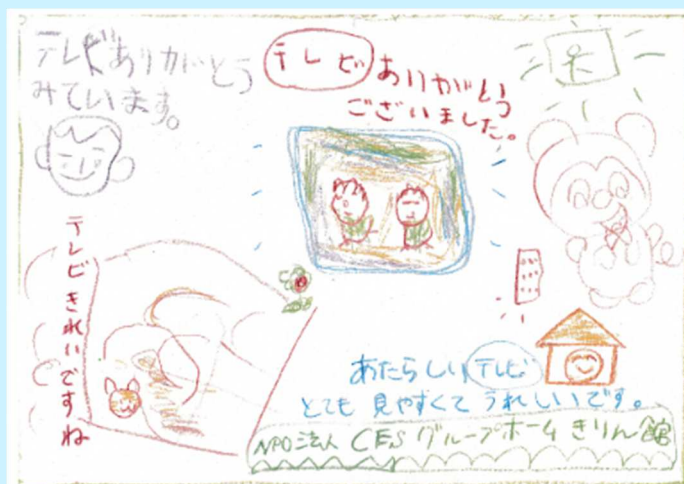 テレビありがとう
みています。
テレビ ありがとう
ございました。
テレビきれいですね
あたらしいテレビ
とても 見やすくて うれしいです。
NPO法人 CES グループホーム きりん館